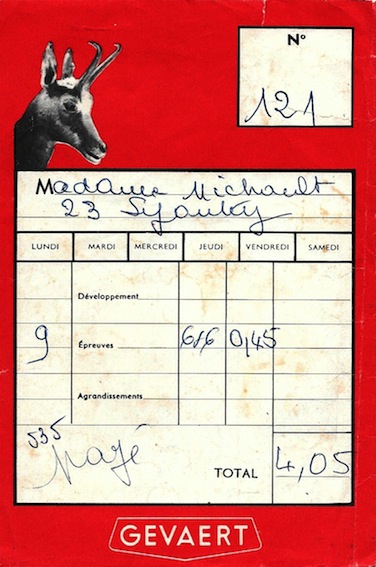 N°
121
Madame Michault
23
LUNDI MARDI MERCREDI JEUDI VENDREDI SAMEDI
Développement
9 Épreuves 6x6 0,45
Agrandissements
535
payé
TOTAL 4,05
GEVAERT